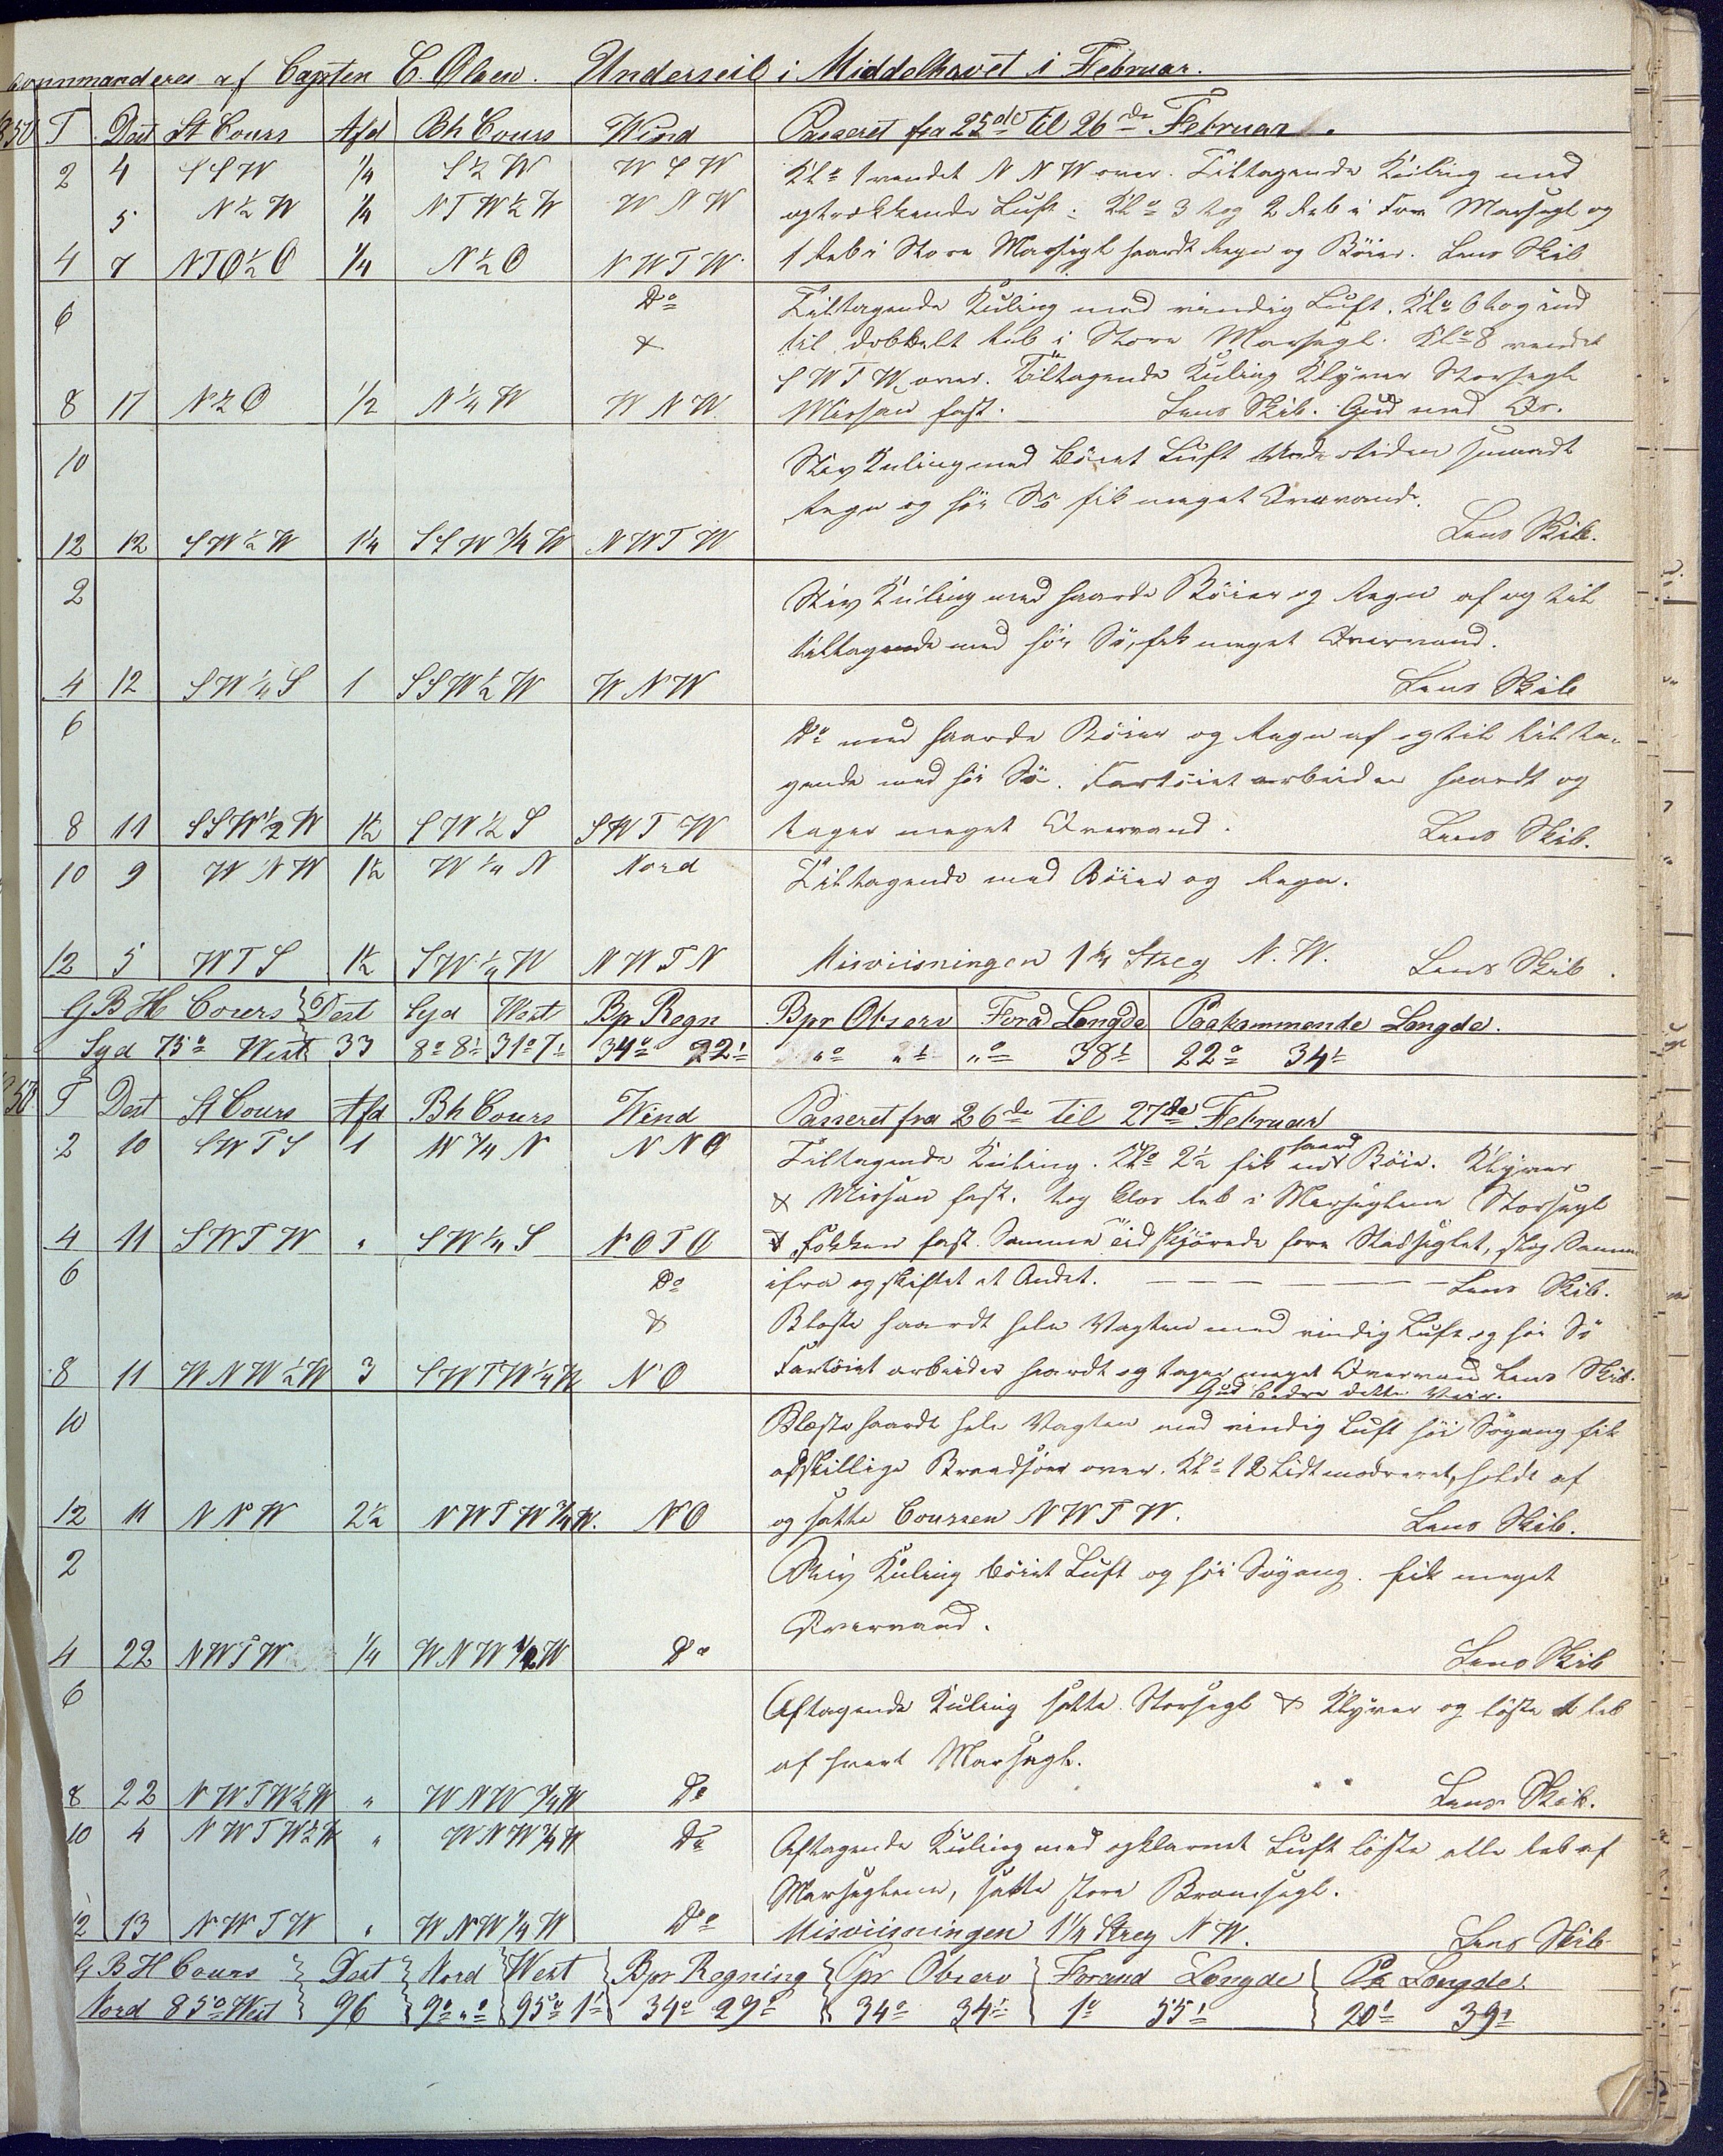 commanderes af Capten C. Olsen. Underseil i Middelhavet i Februar.
1850 T Dest St Cours Afd Bh Cours Wind Passeret fra 25de til 26de Februar.
2 4 SSW 1/4 S 1/2 W WSW Klo 1 vendet NNW over. Tiltagende Kuling med
5 N 1/2 W 1/4 NTW 1/2 W WNW optrækkende Luft. Klo 3 tog 2 Reb i For Mersegl og
4 7 NTO 1/2 O 1/4 N 1/2 O NWTW 1 Reb i Store Mersegl haardt Regn og Böier. Lens Skib
6 Do Tiltagende Kuling med vindig Luft. Klo 6 tog ind
& til dobbelt Reb i Store Mersegl. Klo 8 vendet
SWTW over. Tiltagende Kuling Klyver Storsegl
8 17 N 1/2 O 1/2 N 1/4 W WNW Missan fast. Lens Skib. Gud med Os.
10 Stiv Kuling med böiet Luft Understiden smaadt
Regn og höi Sö fik meget Overvand.
12 12 SW 1/2 W 1 1/4 SSW 3/4 W NWTW Lens Skib.
2 Stiv Kuling med haarde Böier og Regn af og til
tiltagende med höi Sö, fik meget Overvand.
4 12 SW 1/4 S 1 SSW 1/2 W WNW Lens Skib
6 Do med haarde Böier og Regn af og til tilta-
gende med höi Sö. Fartöiet arbeider haardt og
8 11 SSW 1/2 W 1 1/2 SW 1/2 S SWTW tager meget Overvand. Lens Skib.
10 9 WNW 1 1/2 W 1/4 N Nord Tiltagende med Böier og Regn.
12 5 WTS 1 1/2 SW 1/2 W NWTN Misviisningen 1 1/4 Streg N.W. Lens Skib.
GBH Cours Dest Syd West Bp Regn Bpr Observ Forad Longde Paakommende Longde.
Syd 75o West 33 8o 8' 31o 7' 34o 22' "o "' "o 38' 22o 34'
1850 T Dest St Cours Afd Bh Cours Wind Passeret fra 26de til 27de Februar
2 10 SWTS 1 W 3/4 N NNO Tiltagende Kuling. Klo 2 1/2 fik en haard Böie. Klyver
& Missan fast. tog klos Reb i Merseglene Storsegl
4 11 SWTW " SW 1/4 S NOTO & Fokken fast. Samme Tid skjörede fore Stadseglet, slog Samme
6 Do ifra og skiftet et Andet. — — — — — Lens Skib.
& Bloste haardt hele Vagten med vindig Luft og höi Sö
8 11 WNW 1/2 W 3 SWTW 1/4 W NO Fartöiet arbeider haardt og tager meget Overvand Lens Skib.
Gud bedre dette Veir.
10 Blæste haardt hele Vagten med vindig Luft höi Sögang fik
adskillige Braadsöer over. Klo 12 Lidt modereret, holdt af
12 11 NNW 2 1/2 NWTW 3/4 W. NO og satte Coursen NWTW. Lens Skib.
2 Stiv Kuling böiet Luft og höi Sögang. fik meget
Overvand.
4 22 NWTW 1/4 WNW 1/2 W Do Lens Skib
6 Aftagende Kuling satte Storsegl & Klyver og löste 1 Reb
af hvert Mersegl.
8 22 NWTW 1/2 W " WNW 3/4 W Do Lens Skib.
10 4 NWTW 1/2 W " WNW 3/4 W Do Aftagende Kuling med opklarnet Luft löste alle Reb af
Merseglene, satte store Bramsegl.
12 13 NWTW " WNW 1/4 W Do Misviisningen 1 1/4 Streg NW. Lens Skib
GBH Cours Dest Nord West Bpr Regning Bpr Observ Forand Longde Pk Longde.
Nord 85o West 96 9o "o 95o 1' 34o 29' 34o 34' 1o 55' 20' 39'